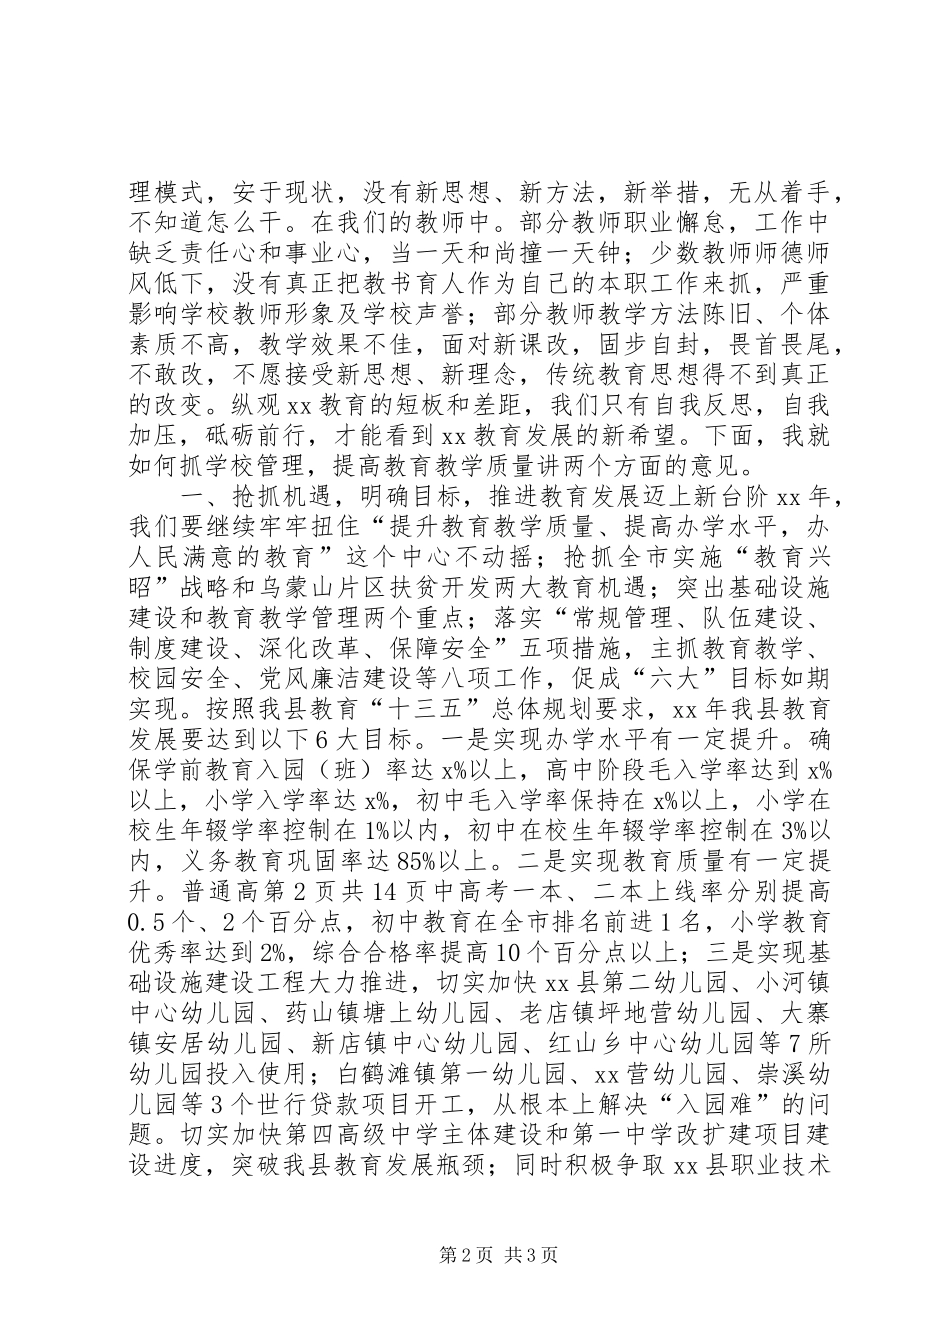 理模式，安于现状，没有新思想、新方法，新举措，无从着手，
不知道怎么干。在我们的教师中。部分教师职业懈怠，工作中
缺乏责任心和事业心，当一天和尚撞一天钟；少数教师师德师
风低下，没有真正把教书育人作为自己的本职工作来抓，严重
影响学校教师形象及学校声誉；部分教师教学方法陈旧、个体
素质不高，教学效果不佳，面对新课改，固步自封，畏首畏尾，
不敢改，不愿接受新思想、新理念，传统教育思想得不到真正
的改变。纵观 xx 教育的短板和差距，我们只有自我反思，自我
加压，砥砺前行，才能看到 xx 教育发展的新希望。下面，我就
如何抓学校管理，提高教育教学质量讲两个方面的意见。
一、抢抓机遇，明确目标，推进教育发展迈上新台阶 xx 年，
我们要继续牢牢扭住“提升教育教学质量、提高办学水平，办
人民满意的教育”这个中心不动摇；抢抓全市实施“教育兴
昭”战略和乌蒙山片区扶贫开发两大教育机遇；突出基础设施
建设和教育教学管理两个重点；落实“常规管理、队伍建设、
制度建设、深化改革、保障安全”五项措施，主抓教育教学、
校园安全、党风廉洁建设等八项工作，促成“六大”目标如期
实现。按照我县教育“十三五”总体规划要求，xx 年我县教育
发展要达到以下 6 大目标。一是实现办学水平有一定提升。确
保学前教育入园（班）率达 x%以上，高中阶段毛入学率达到 x%
以上，小学入学率达 x%，初中毛入学率保持在 x%以上，小学在
校生年辍学率控制在 1%以内，初中在校生年辍学率控制在 3%以
内，义务教育巩固率达 85%以上。二是实现教育质量有一定提
升。普通高第 2 页共 14 页中高考一本、二本上线率分别提高
0.5 个、2 个百分点，初中教育在全市排名前进 1 名，小学教育
优秀率达到 2%，综合合格率提高 10 个百分点以上；三是实现基
础设施建设工程大力推进，切实加快 xx 县第二幼儿园、小河镇
中心幼儿园、药山镇塘上幼儿园、老店镇坪地营幼儿园、大寨
镇安居幼儿园、新店镇中心幼儿园、红山乡中心幼儿园等 7 所
幼儿园投入使用；白鹤滩镇第一幼儿园、xx 营幼儿园、崇溪幼
儿园等 3 个世行贷款项目开工，从根本上解决“入园难”的问
题。切实加快第四高级中学主体建设和第一中学改扩建项目建
设进度，突破我县教育发展瓶颈；同时积极争取 xx 县职业技术
第 2 页 共 3 页